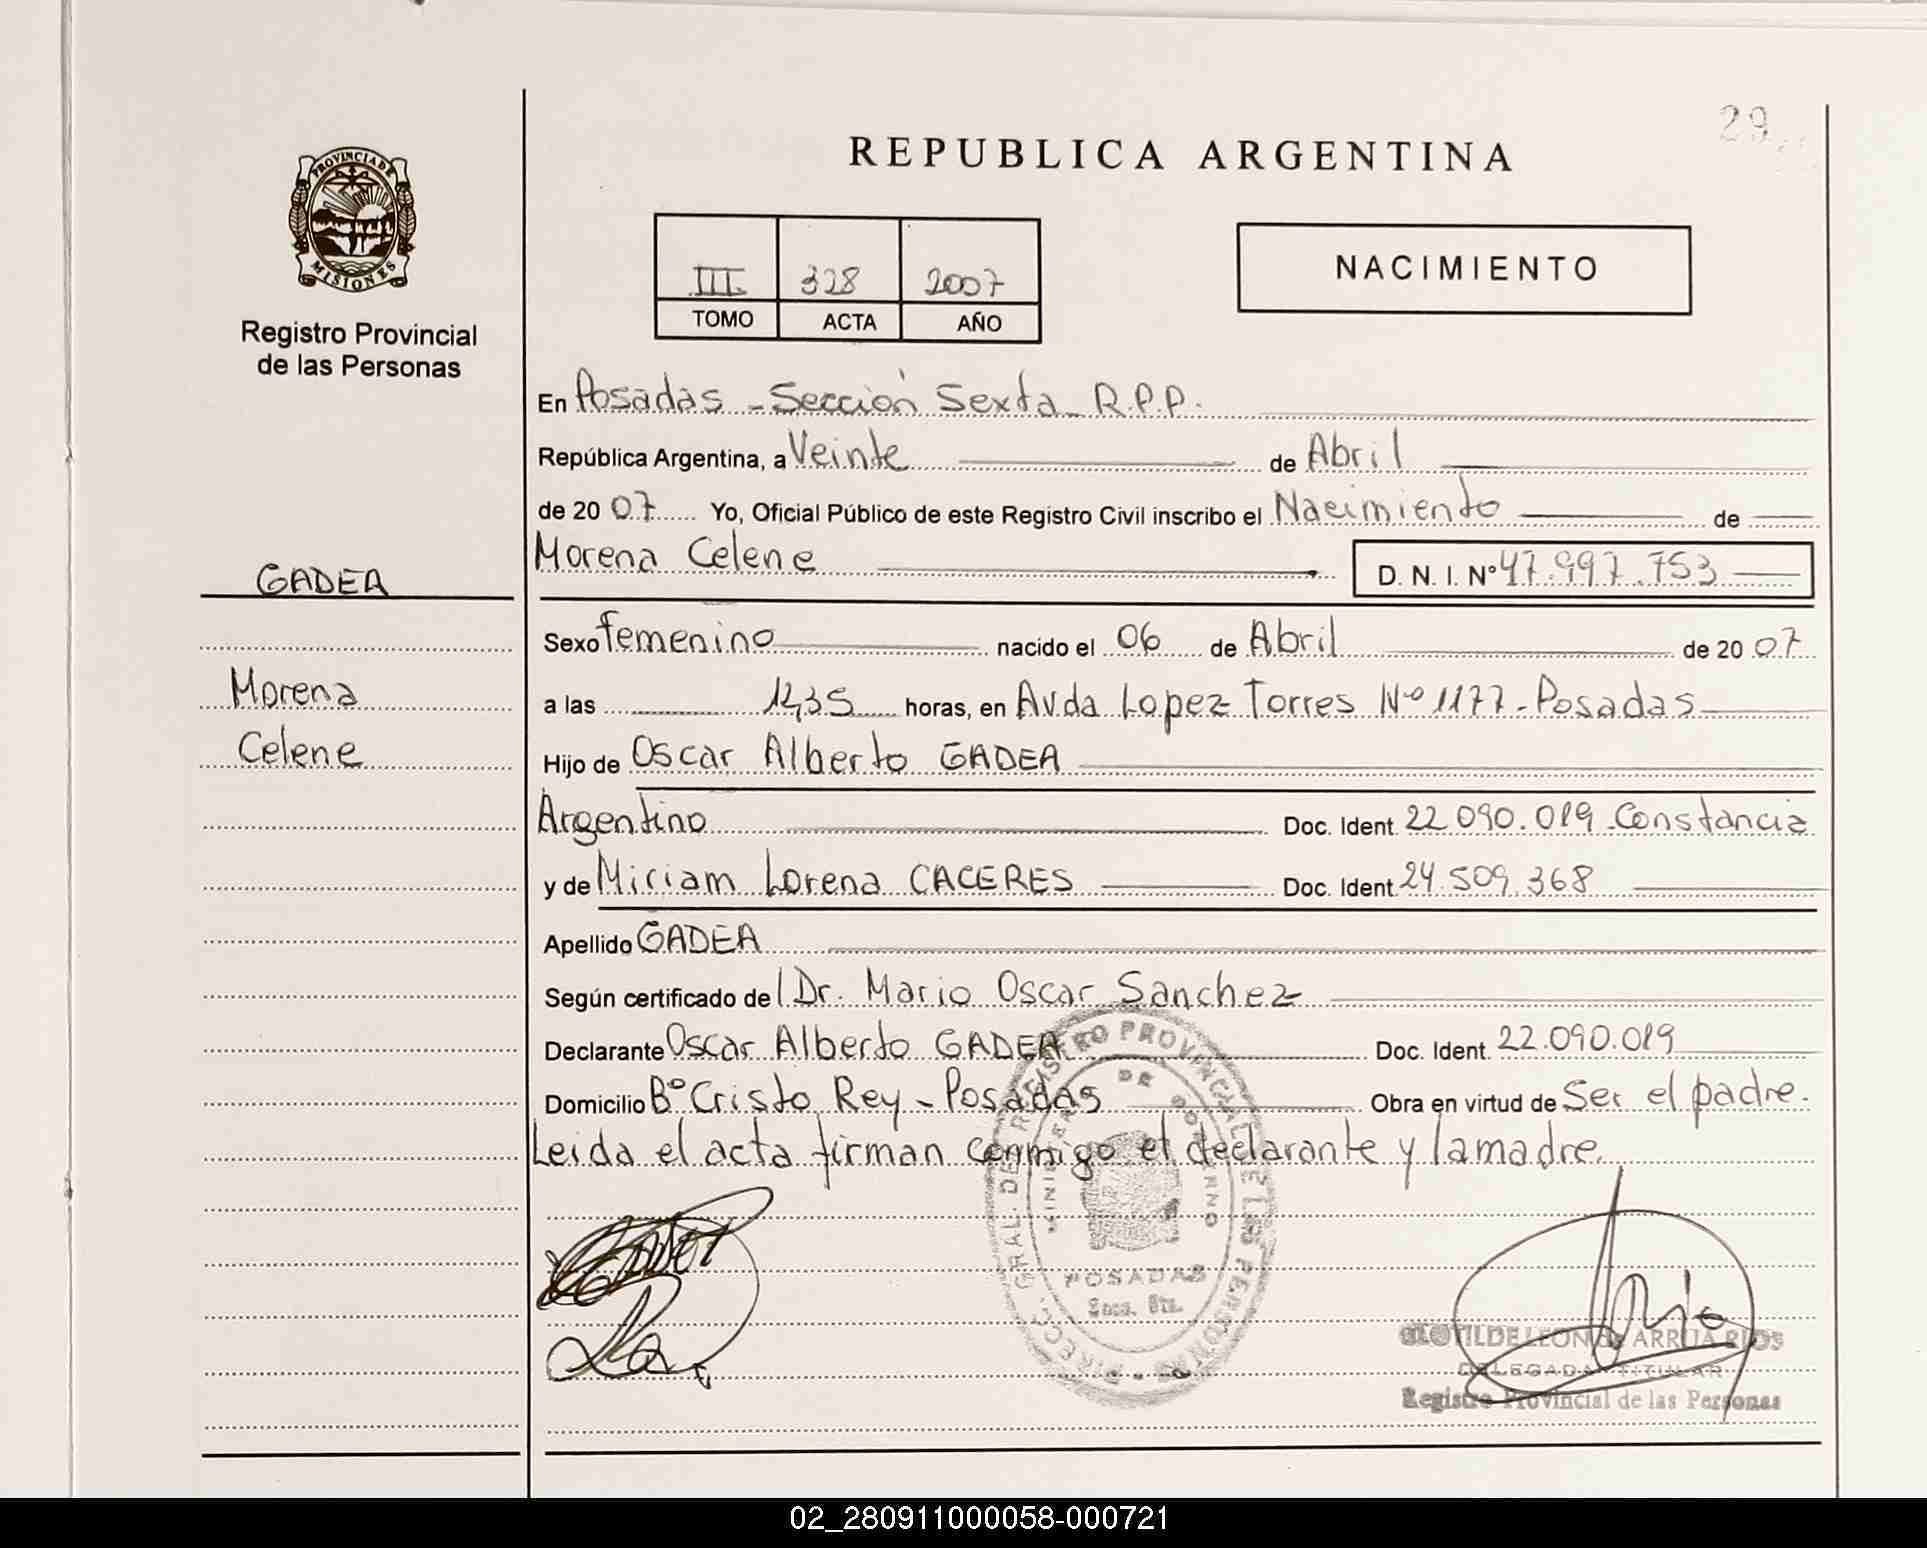 29
REPUBLICA ARGENTINA
PROVINCIA DE
MISIONES
Registro Provincial
de las Personas
III 328 2007
TOMO ACTA AÑO
NACIMIENTO
En Posadas - Sección Sexta R.P.P.
República Argentina, a Veinte de Abril
de 2007 Yo, Oficial Público de este Registro Civil inscribo el Nacimiento de
Morena Celene D. N. I. Nº 47.997.753
GADEA
Morena
Celene
Sexo femenino nacido el 06 de Abril de 2007
a las 12,35 horas, en Avda Lopez Torres Nº 1177 - Posadas
Hijo de Oscar Alberto GADEA
Argentino Doc. Ident. 22.090.019 Constancia
y de Miriam Lorena CACERES Doc. Ident. 24.509.368
Apellido GADEA
Según certificado de Dr. Mario Oscar Sanchez
Declarante Oscar Alberto GADEA Doc. Ident. 22.090.019
Domicilio Bº Cristo Rey - Posadas Obra en virtud de Ser el padre.
Leida el acta firman conmigo el declarante y la madre.
DIRECC. GRAL. DE REGISTRO PROVINCIAL DE LAS PERSONAS
MINISTERIO DE GOBIERNO
POSADAS
CLOTILDE LEON de ARRUA RIOS
DELEGADA TITULAR
Registro Provincial de las Personas
02_280911000058-000721